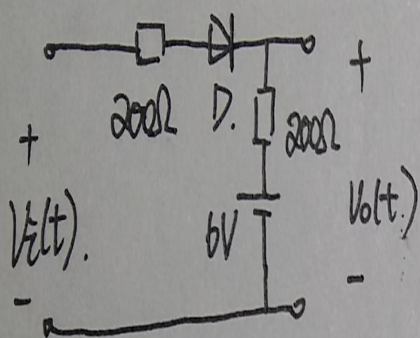 200Ω D. 200Ω
+ +
Vi(t). 6V Vo(t.)
- -